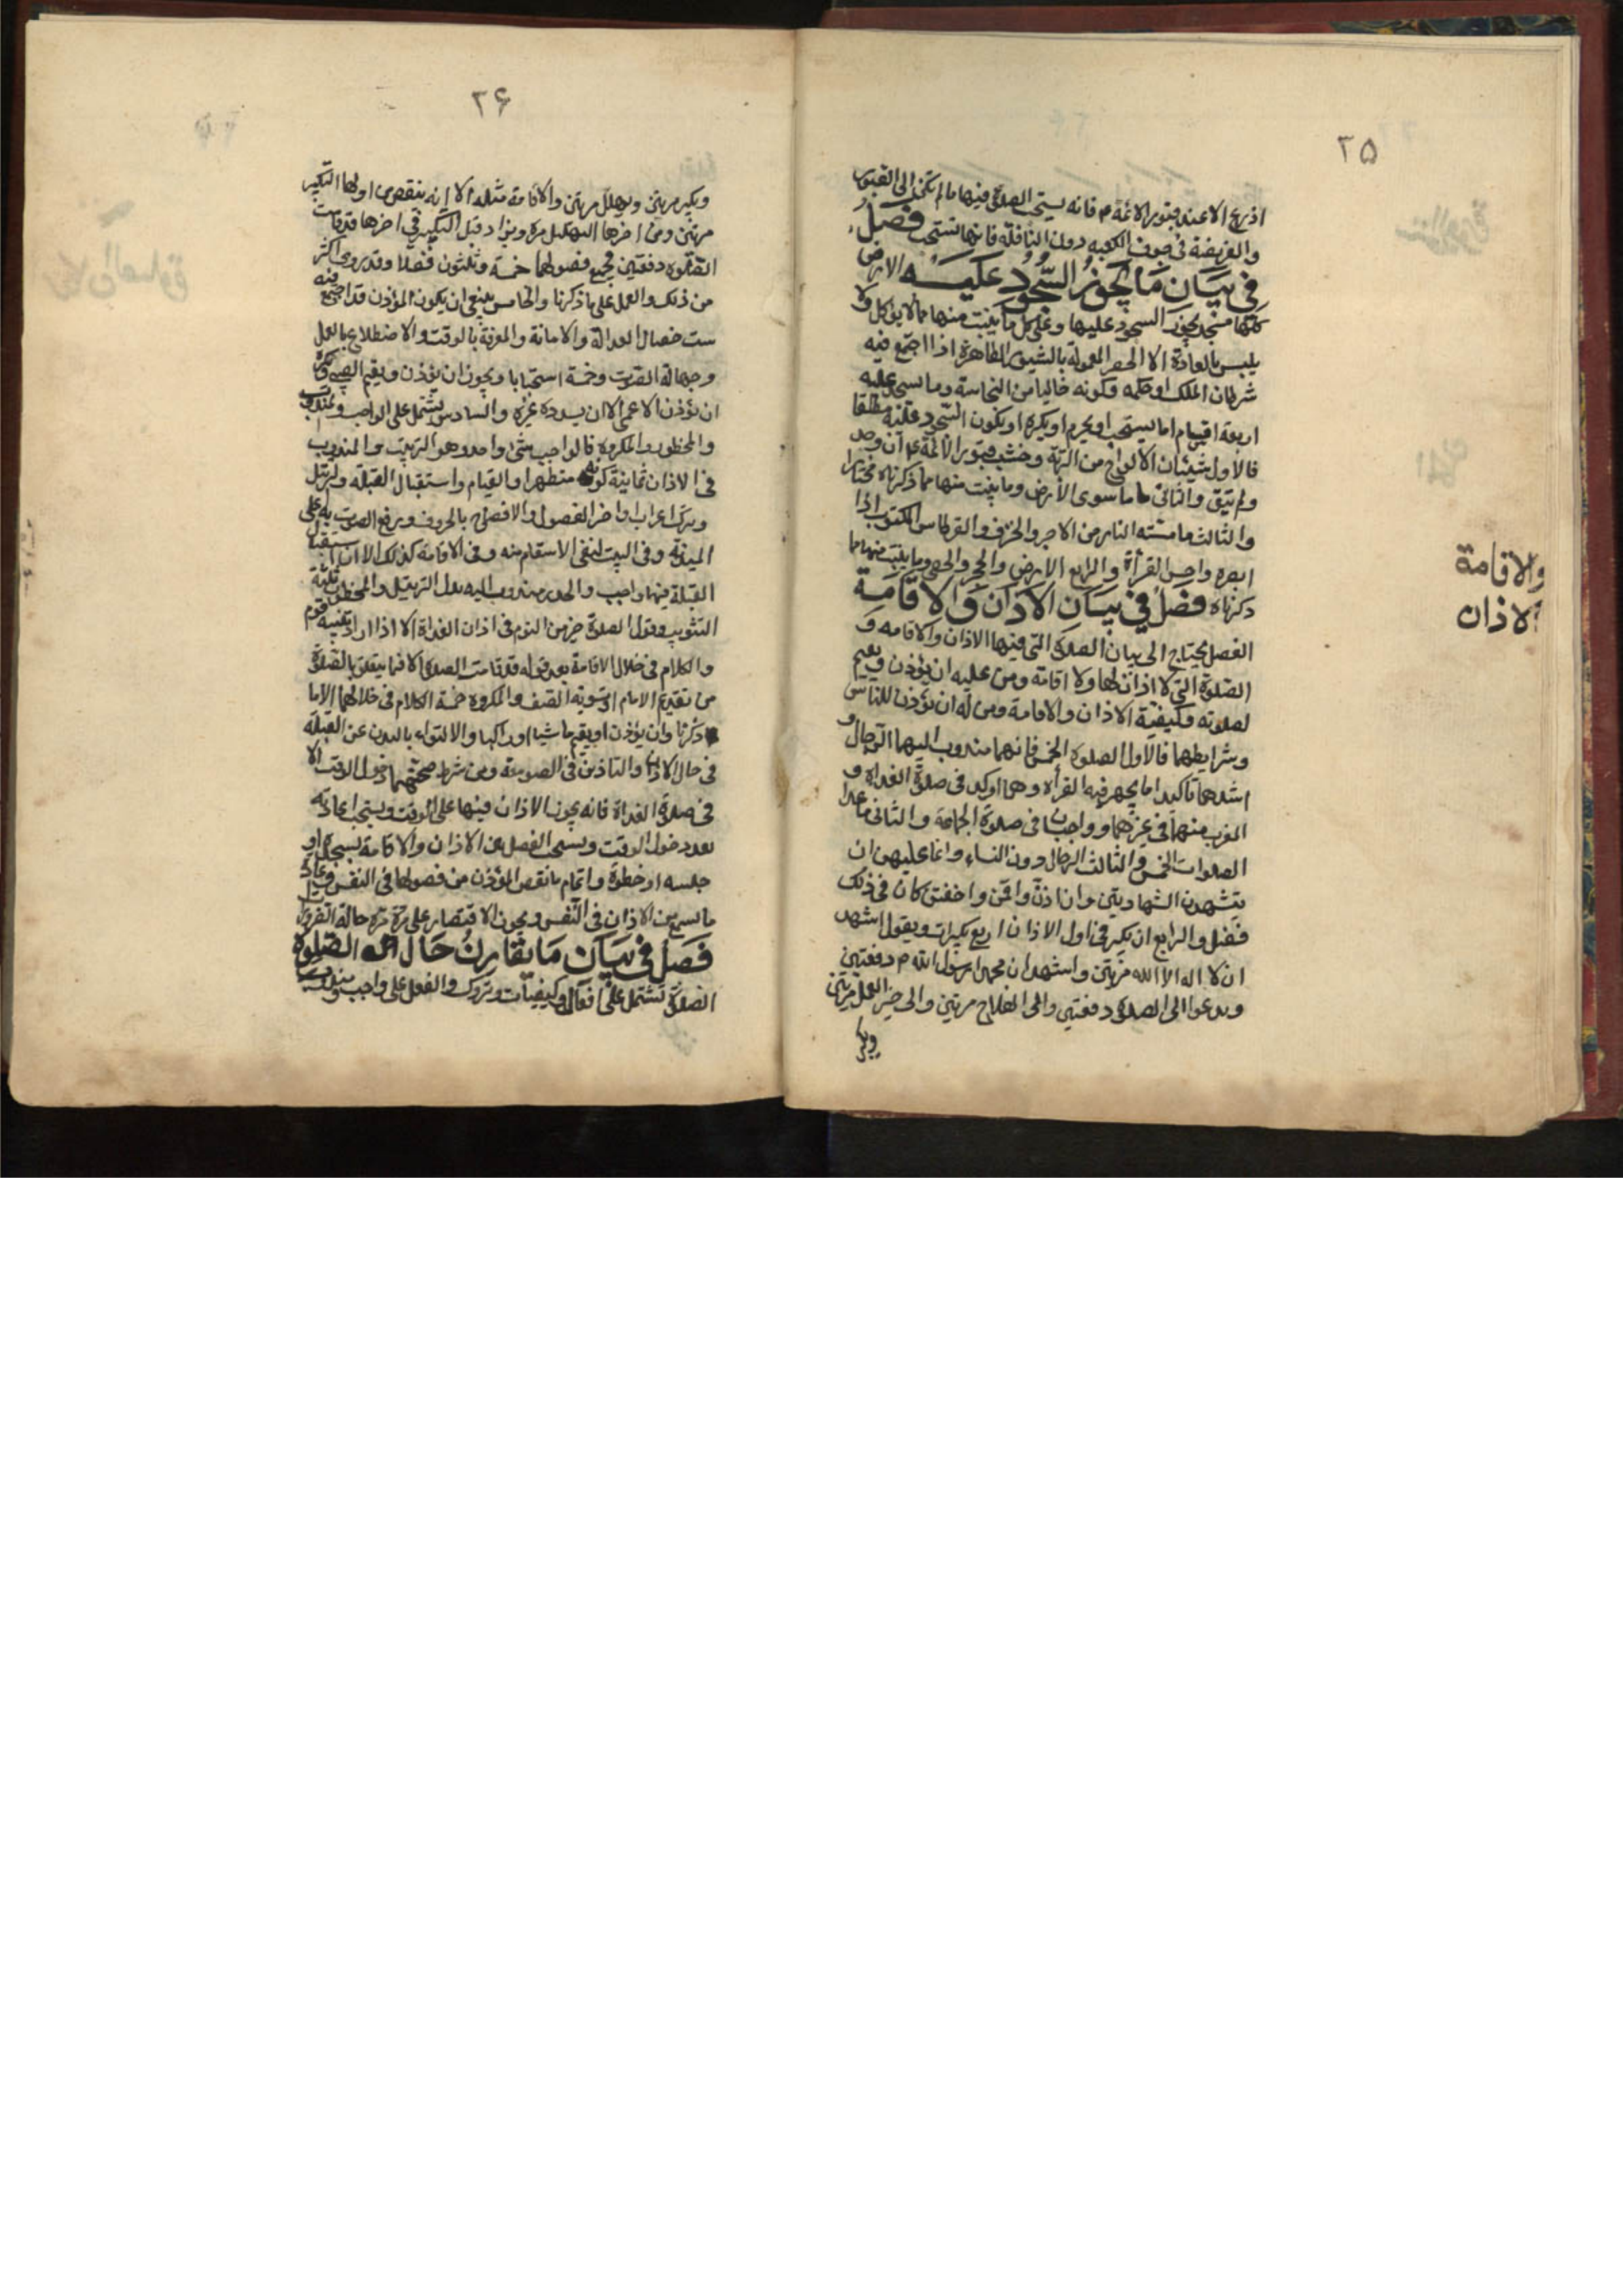 ٢٥
اذرع الا عند قبور الائمة م فانه يستحب الصلوة فيها ما لم يتخذ الى القبور
والفريضة فى جوف الكعبه دون النافلة فانها تستحب فصل
فى بيان ما يجوز السجود عليه الارض
كلها مسجد يجوز السجود عليها وعلى كل ما ينبت منها مما لا يؤكل ولا
يلبس بالعادة الا الحصر المعمولة بالسيور الظاهرة اذا اجتمع فيه
شرطان الملك او حكمه وكونه خاليا من النجاسة وما يسجد عليه
اربعة اقسام اما يستحب او يحرم او يكره او يكون السجود عليه مطلقا
فالاول شيئان الالواح من التربة وخشب قبور الائمة ع ان وجد
ولم يتق والثانى ما سوى الارض وما ينبت منها مما ذكرناه مختارا
والثالث ما مسته النار من الاجر والخزف والقرطاس المكتوب اذا
ابصره واحسن القرأة والرابع الارض والحجر والحصى وما ينبت منها مما
ذكرناه فصل فى بيان الاذان والاقامة
الفصل يحتاج الى بيان الصلوة التى فيها الاذان والاقامه و
الصلوة التى لا اذان لها ولا اقامة ومن عليه ان يؤذن ويقيم
لصلوته وكيفية الاذان والاقامة ومن له ان يؤذن للناس
وشرايطهما فالاول الصلوة الخمس فانهما مندوب اليهما الرجال و
اشدهما تاكيدا ما يجهر فيه القرأه وهما اوكد فى صلوة الغداة و
المغرب منهما فى غيرهما وواجبان فى صلوة الجماعة والثانى ما عدا
الصلوات الخمس والثالث الرجال دون النساء وانما عليهن ان
يتشهدن الشهادتين وان اذن واقمن واخفتن كان فى ذلك
فضل والرابع ان يكبر فى اول الاذان اربع تكبيرات ويقول اشهد
ان لا اله الا الله مرتين واشهد ان محمدا رسول الله م دفعتين
ويدعوا الى الصلوة دفعتين والى الفلاح مرتين والى خير العمل مرتين
ويكبر
والاقامة
الاذان
٢۶
ويكبر مرتين ويهلل مرتين والاقامة مثله الا انه ينقص من اولها التكبير
مرتين ومن اخرها التهليل مرة ويزاد قبل التكبير فى اخرها قد قامت
الصلوة دفعتين فجميع فصولهما خمسة وثلثون فصلا وقد روى اكثر
من ذلك والعمل على ما ذكرنا والخامس ينبغى ان يكون المؤذن قد اجتمع فيه
ست خصال العدالة والامانة والمعرفة بالوقت والاضطلاع بالعمل
وجهالة الصوت وخمسة استحبابا ويجوز ان يؤذن ويقيم الصبى ويكره
ان يؤذن الاعمى الا ان يسدده غيره والسادس يشتمل على الواجب والمندوب
والمحظور والمكروه فالواجب شئ واحد وهو الترتيب والمندوب
فى الاذان ثمانية كونه متطهرا والقيام واستقبال القبلة والترتيل
وترك اعراب اواخر الفصول والافصاح بالحروف ويرفع الصوت به على
الميذنه وفى البيت لنفى الاسقام منه وفى الاقامة كذلك الا ان استقبال
القبلة فيها واجب والحدر مندوب اليه بدل الترتيل والمحظور ثلثة
التثويب وقول الصلوة خير من النوم فى اذان الغداة الا اذا اراد تنبيه قوم
والكلام فى خلال الاقامة بعد قوله قد قامت الصلوة الا فيما يتعلق بالصلوة
من تقديم الامام او تسوية الصف والمكروه خمسة الكلام فى خلالهما الا ما
ذكرنا وان يؤذن او يقيم ماشيا او راكبا والالتواء بالبدن عن القبلة
فى حال الاذان والتاذين فى الصومعة ومن شرط صحتهما دخول الوقت الا
فى صلوة الغداة فانه يجوز الاذان فيها على الوقت ويستحب اعادته
بعد دخول الوقت ويستحب الفصل بين الاذان والاقامة بسجدة او
جلسه او خطوة واتمام ما نقص المؤذن من فصولها فى النفس وحكاية
ما يسمع من الاذان فى النفس ويجوز الاقتصار على مرة مرة حالة الضرورة
فصل فى بيان ما يقارن حال الصلوة
الصلوة تشتمل على افعال وكيفيات وتروك والفعل على واجب ومندوب